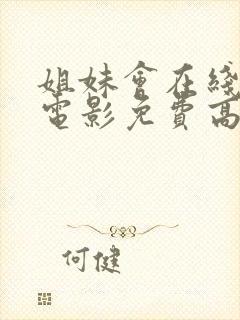 姐妹會在綫
電影免費高
何健